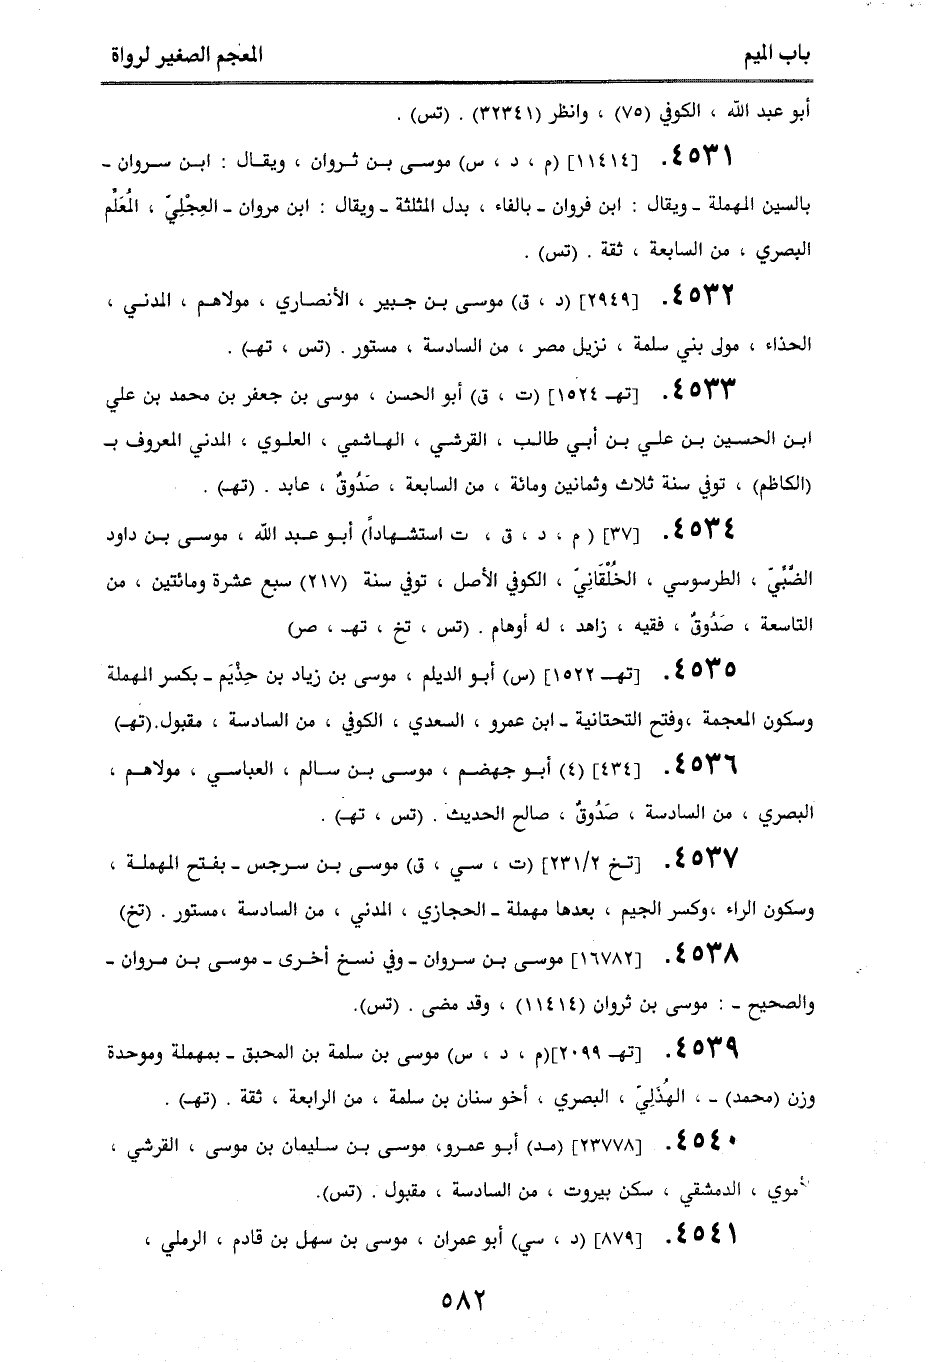 باب الميم
المعجم الصغير لرواة
أبو عبد الله ، الكوفي (٧٥) ، وانظر (٣٢٣٤١) . (تس) .
٤٥٣١. [١١٤١٤] (م ، د ، س) موسى بن ثروان ، ويقال : ابن سروان ـ
بالسين المهملة ـ ويقال : ابن فروان ـ بالفاء ، بدل المثلثة ـ ويقال : ابن مروان ـ العِجْلِيّ ، المُعَلِّم
البصري ، من السابعة ، ثقة . (تس) .
٤٥٣٢. [٢٩٤٩] (د ، ق) موسى بن جبير ، الأنصاري ، مولاهم ، المدني ،
الحذاء ، مولى بني سلمة ، نزيل مصر ، من السادسة ، مستور . (تس ، تهـ) .
٤٥٣٣. [تهـ ١٥٢٤] (ت ، ق) أبو الحسن ، موسى بن جعفر بن محمد بن علي
ابن الحسين بن علي بن أبي طالب ، القرشي ، الهاشمي ، العلوي ، المدني المعروف بـ
(الكاظم) ، توفي سنة ثلاث وثمانين ومائة ، من السابعة ، صَدُوقٌ ، عابد . (تهـ) .
٤٥٣٤. [٣٧] ( م ، د ، ق ، ت استشهاداً) أبو عبد الله ، موسى بن داود
الضَّبِّيّ ، الطرسوسي ، الخُلْقَانِيّ ، الكوفي الأصل ، توفي سنة (٢١٧) سبع عشرة ومائتين ، من
التاسعة ، صَدُوقٌ ، فقيه ، زاهد ، له أوهام . (تس ، تخ ، تهـ ، صر)
٤٥٣٥. [تهـ ١٥٢٢] (س) أبو الديلم ، موسى بن زياد بن حِذْيَم ـ بكسر المهملة
وسكون المعجمة ،وفتح التحتانية ـ ابن عمرو ، السعدي ، الكوفي ، من السادسة ، مقبول.(تهـ)
٤٥٣٦. [٤٣٤] (٤) أبو جهضم ، موسى بن سالم ، العباسي ، مولاهم ،
البصري ، من السادسة ، صَدُوقٌ ، صالح الحديث . (تس ، تهـ) .
٤٥٣٧. [تخ ٢٣١/٢] (ت ، سي ، ق) موسى بن سرجس ـ بفتح المهملة ،
وسكون الراء ،وكسر الجيم ، بعدها مهملة ـ الحجازي ، المدني ، من السادسة ،مستور . (تخ)
٤٥٣٨. [١٦٧٨٢] موسى بن سروان ـ وفي نسخ أخرى ـ موسى بن مروان ـ
والصحيح ـ : موسى بن ثروان (١١٤١٤) ، وقد مضى . (تس).
٤٥٣٩. [تهـ ٢٠٩٩](م ، د ، س) موسى بن سلمة بن المحبق ـ بمهملة وموحدة
وزن (محمد) ـ ، الهُذَلِيّ ، البصري ، أخو سنان بن سلمة ، من الرابعة ، ثقة . (تهـ) .
٤٥٤٠. [٢٣٧٧٨] (مد) أبو عمرو، موسى بن سليمان بن موسى ، القرشي ،
أموي ، الدمشقي ، سكن بيروت ، من السادسة ، مقبول . (تس).
٤٥٤١. [٨٧٩] (د ، سي) أبو عمران ، موسى بن سهل بن قادم ، الرملي ،
٥٨٢